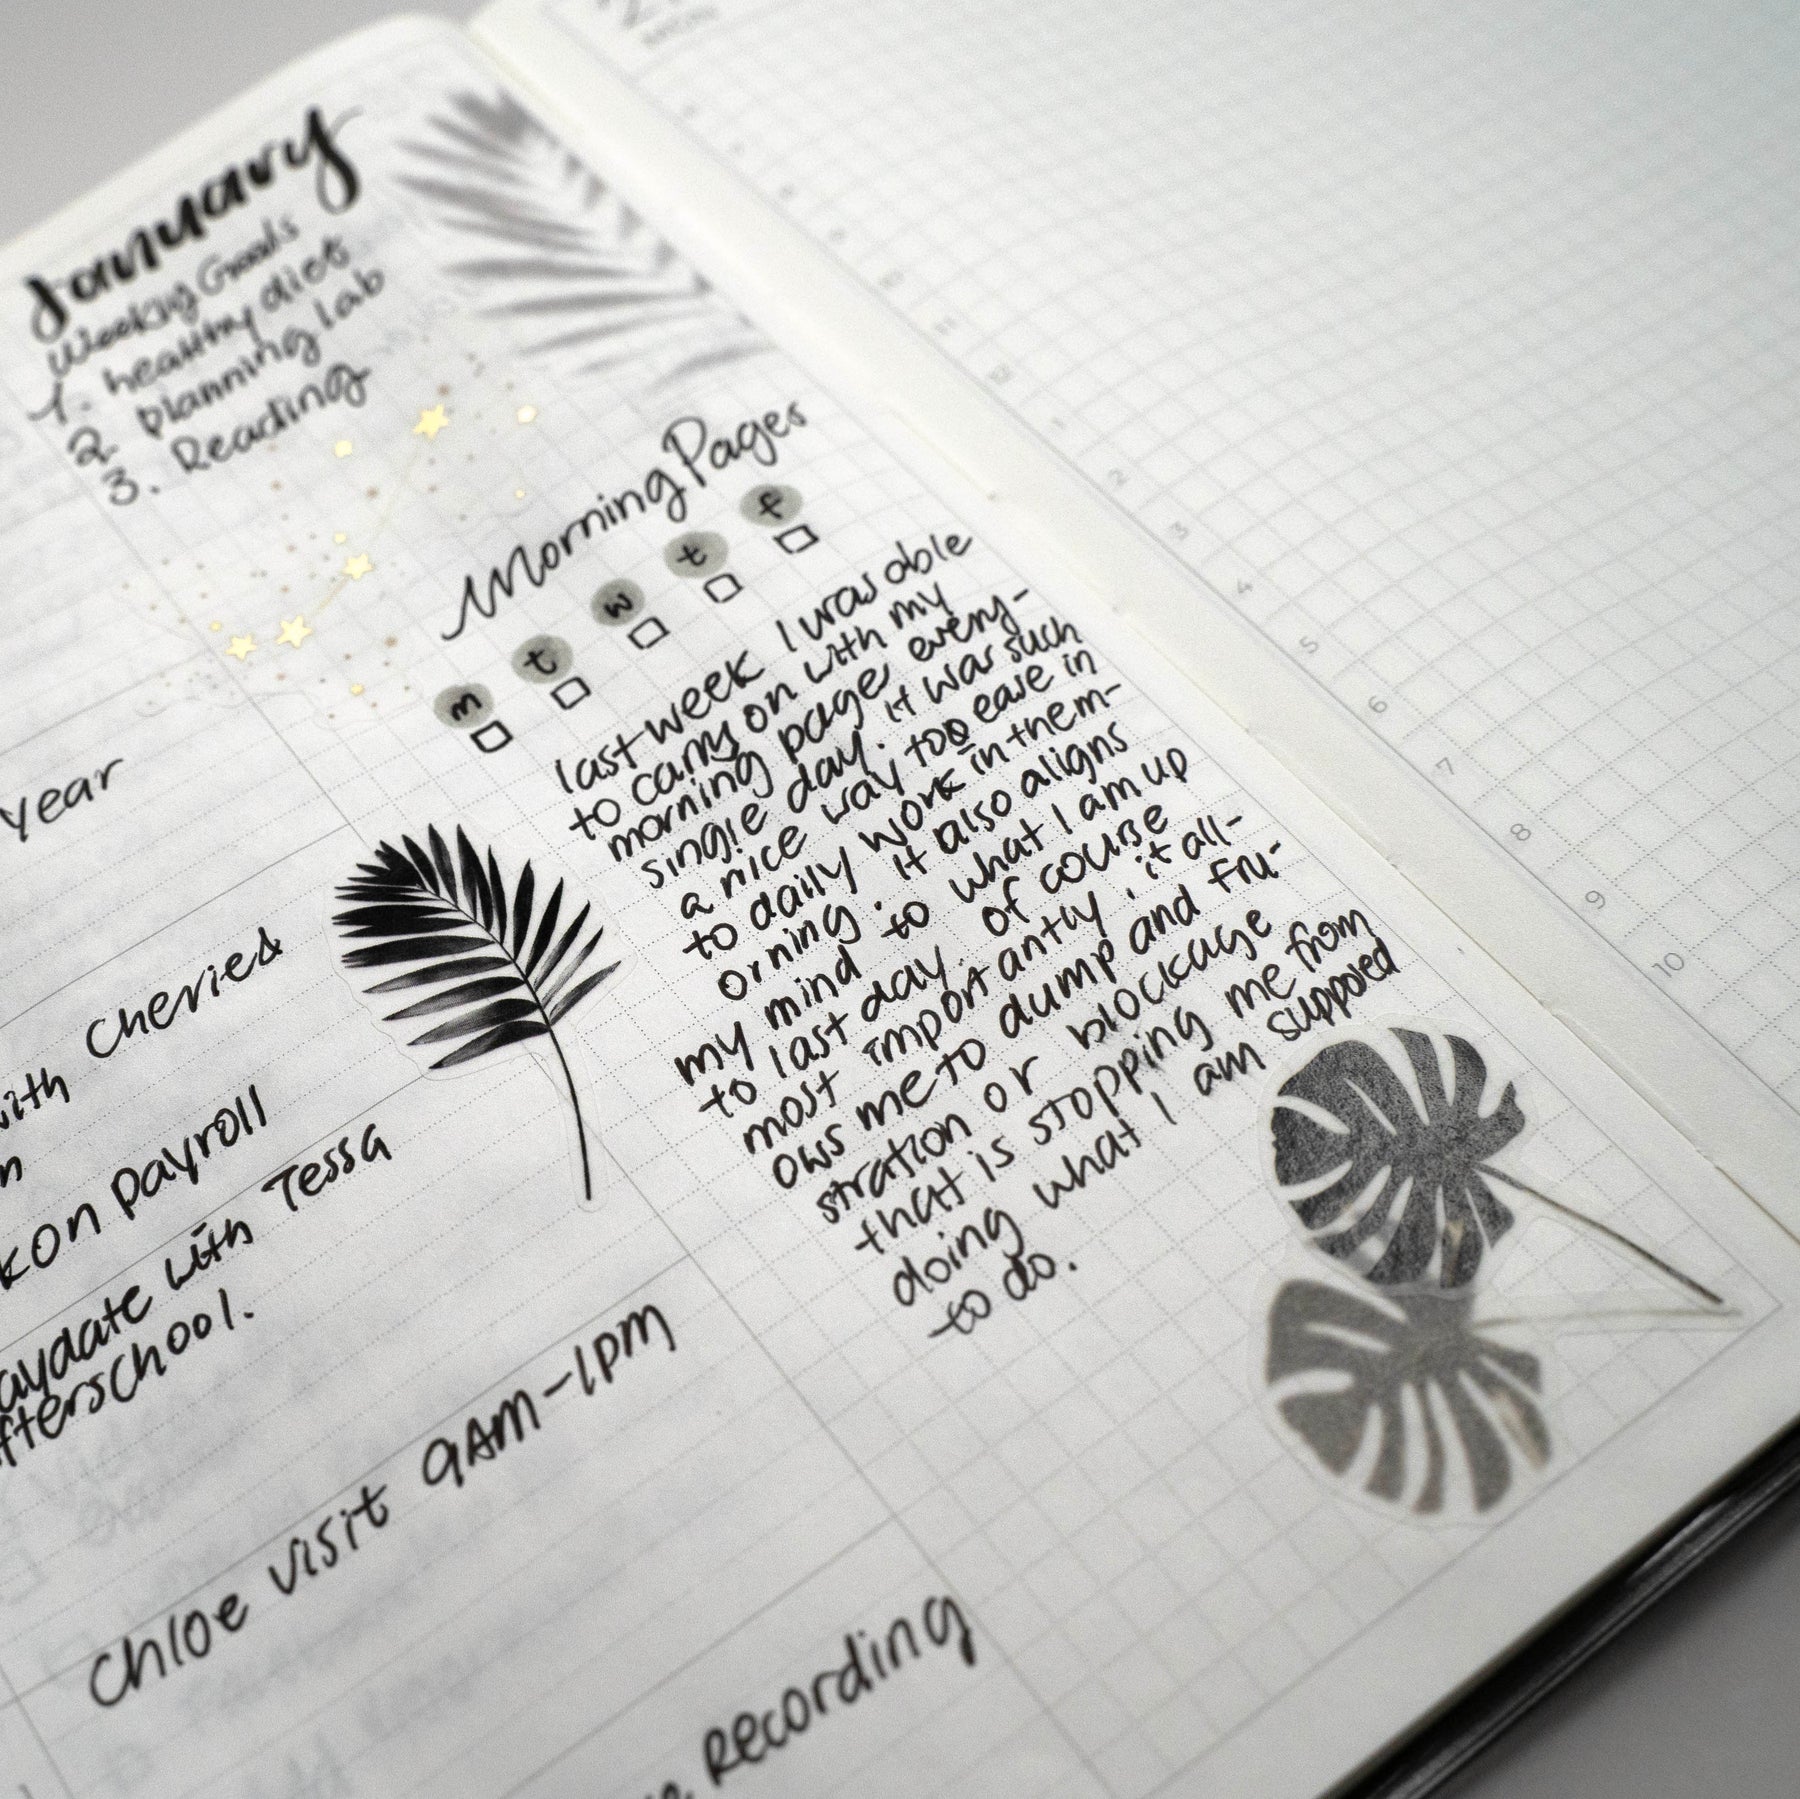 January
Weekly Goals
1. healthy diet
2. planning lab
3. Reading
Year
with Cheries
on payroll
with Tessa
afterschool.
Chloe visit 9AM-1PM
recording
Morning Pages
m t w t f
last week I was able
to carry on with my
morning pages every-
single day. it was such
a nice way too ease in
to daily work in them-
orning. It also aligns
my mind to what I am up
to last day. of course
most importantly, it all-
ows me to dump and fru-
stration or blockage
that is stopping me from
doing what I am supposed
to do.
12
1
2
3
4
5
6
7
8
9
10